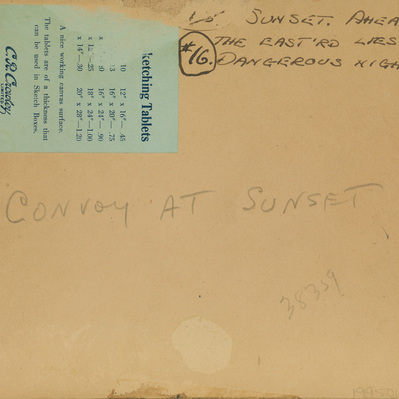 SUNSET. AHEA
THE EAST'RD LIES
#16. DANGEROUS NIGH
ketching Tablets
10 12" x 16"— .45
x 16" x 20"— .75
x 16" x 24"— .90
x 18" x 24"—1.00
x 14"—.30 20" x 28"—1.20
A nice working canvas surface.
The tablets are of a thickness that
can be used in Sketch Boxes.
C.R. Crowley
LIMITED
CONVOY AT SUNSET
38359